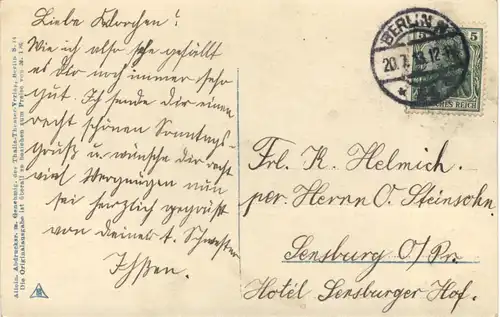 Liebe Klärchen!
Wie ich also sehe gefällt
es Dir noch immer sehr
gut. Ich sende dir einen
recht schönen Sonntags-
gruß u. wünsche dir recht
viel Vergnügen nun
sei herzlich gegrüßt
von deiner l. Schwester
BERLIN N.
20.7.13.12-1N
5
DEUTSCHES REICH
Frl. K. Helmich.
per. Herrn O. Steinsohn
Sensburg O/Pr
Hotel Sensburger Hof.
Allein. Abdrucksr. m. Genehmig. des Thalia-Theater-Verlag, Berlin S. 14
Die Originalausgabe ist überall zu beziehen zum Preise von M.